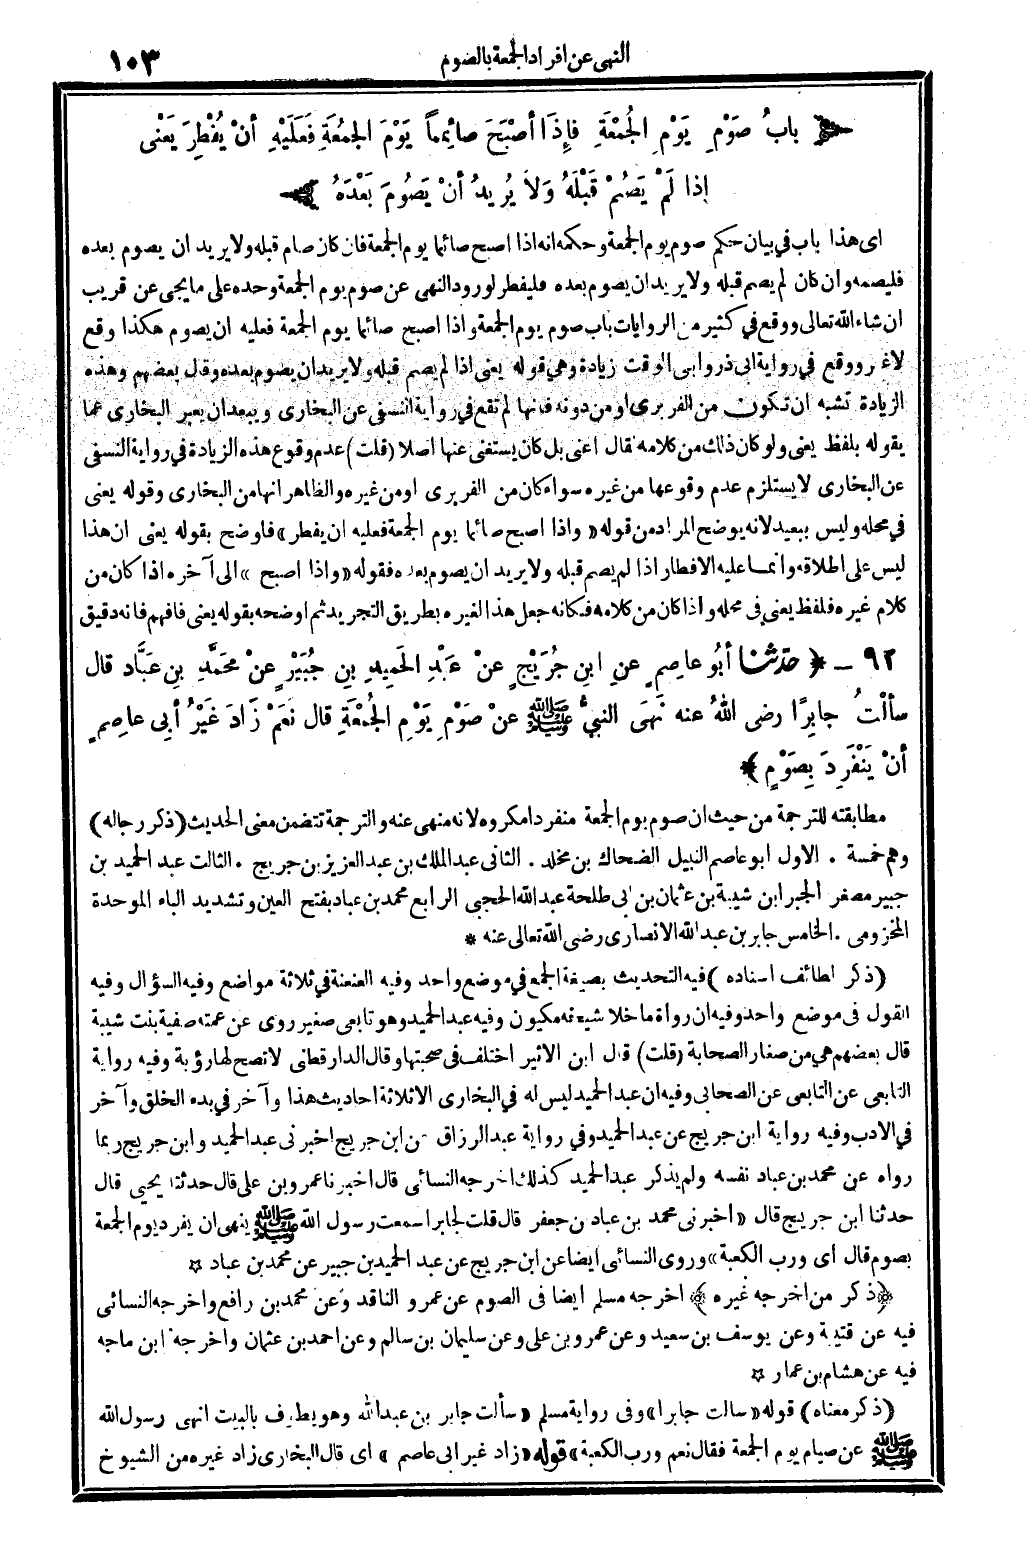 النهى عن افراد الجمعة بالصوم
١٠٣
بابُ صَوْمِ يَوْمِ الجُمْعَةِ فإِذَا أصْبَحَ صائِماً يَوْمَ الجُمُعَةِ فَعَلَيْهِ أنْ يُفْطِرَ يَعْنى
إذا لَمْ يَصُمْ قَبْلَهُ وَلاَ يُرِيدُ أنْ يَصُومَ بَعْدَهُ
اى هذا باب في بيان حكم صوم يوم الجمعة وحكمه انه اذا اصبح صائما يوم الجمعة فان كان صام قبله ولا يريد ان يصوم بعده
فليصمه وان كان لم يصم قبله ولا يريد ان يصوم بعده فليفطر لورود النهى عن صوم يوم الجمعة وحده على ما يجى عن قريب
ان شاء الله تعالى ووقع في كثير من الروايات باب صوم يوم الجمعة واذا اصبح صائما يوم الجمعة فعليه ان يصوم هكذا وقع
لاغير ووقع في رواية ابى ذر وابى الوقت زيادة وهي قوله يعنى اذا لم يصم قبله ولا يريد ان يصوم بعده وقال بعضهم وهذه
الزيادة تشبه ان تكون من الفربرى او من دونه فانها لم تقع في رواية النسفى عن البخارى ويبعد ان يعبر البخارى عما
يقوله بلفظ يعنى ولو كان ذلك من كلامه لقال اعنى بل كان يستغنى عنها اصلا (قلت) عدم وقوع هذه الزيادة في رواية النسفى
عن البخارى لا يستلزم عدم وقوعها من غيره سواء كان من الفربرى او من غيره والظاهر انها من البخارى وقوله يعنى
في محله وليس ببعيد لانه يوضح المراد من قوله «واذا اصبح صائما يوم الجمعة فعليه ان يفطر» فاوضح بقوله يعنى ان هذا
ليس على اطلاقه وانما عليه الافطار اذا لم يصم قبله ولا يريد ان يصوم بعده فقوله «واذا اصبح» الى آخره اذا كان من
كلام غيره فلفظ يعنى في محله واذا كان من كلامه فكانه جعل هذا لغيره بطريق التجريد ثم اوضحه بقوله يعنى فافهم فانه دقيق
٩٢ ـ ﴿ حدثنا أبُو عاصِمٍ عنِ ابنِ جُرَيْجٍ عنْ عَبْدِ الحَمِيدِ بنِ جُبَيْرٍ عنْ مُحَمَّدِ بنِ عَبَّاد قال
سألْتُ جابِرًا رضى اللهُ عنه نَهَى النبيُّ ﷺ عنْ صَوْمِ يَوْمِ الجُمْعَةِ قال نعَمْ زَادَ غَيْرُ أبِى عاصِمٍ
أنْ يَنْفَرِدَ بِصَوْمٍ ﴾
مطابقته للترجمة من حيث ان صوم يوم الجمعة منفردا مكروه لانه منهى عنه والترجمة تتضمن معنى الحديث (ذكر رجاله)
وهم خمسة . الاول ابو عاصم النبيل الضحاك بن مخلد . الثانى عبد الملك بن عبد العزيز بن جريج . الثالث عبد الحميد بن
جبير مصغر الجبر ابن شيبة بن عثمان بن ابى طلحة عبد الله الحجبى الرابع محمد بن عباد بفتح العين وتشديد الباء الموحدة
المخزومى . الخامس جابر بن عبد الله الانصارى رضى الله تعالى عنه *
(ذكر لطائف اسناده) فيه التحديث بصيغة الجمع في موضع واحد وفيه العنعنة في ثلاثة مواضع وفيه السؤال وفيه
القول فى موضع واحد وفيه ان رواة ما خلا شيخه مكيون وفيه عبد الحميد وهو تابعى صغير روى عن عمته صفية بنت شيبة
قال بعضهم هي من صغار الصحابة (قلت) قال ابن الاثير اختلف فى صحبتها وقال الدارقطنى لا تصح لها رؤية وفيه رواية
التابعى عن التابعى عن الصحابى وفيه ان عبد الحميد ليس له في البخارى الا ثلاثة احاديث هذا وآخر في بدء الخلق وآخر
في الادب وفيه رواية ابن جريج عن عبد الحميد وفي رواية عبد الرزاق عن ابن جريج اخبرنى عبد الحميد وابن جريج ربما
رواه عن محمد بن عباد نفسه ولم يذكر عبد الحميد كذلك اخرجه النسائى قال اخبرنا عمرو بن على قال حدثنا يحيى قال
حدثنا ابن جريج قال «اخبرنى محمد بن عباد بن جعفر قال قلت لجابر اسمعت رسول الله ﷺ ينهى ان يفرد يوم الجمعة
بصوم قال اى ورب الكعبة» وروى النسائى ايضا عن ابن جريج عن عبد الحميد بن جبير عن محمد بن عباد ☆
﴿ذكر من اخرجه غيره﴾ اخرجه مسلم ايضا فى الصوم عن عمرو الناقد وعن محمد بن رافع واخرجه النسائى
فيه عن قتيبة وعن يوسف بن سعيد وعن عمرو بن على وعن سليمان بن سالم وعن احمد بن عثمان واخرجه ابن ماجه
فيه عن هشام بن عمار ☆
(ذكر معناه) قوله «سالت جابرا» وفى رواية مسلم «سألت جابر بن عبد الله وهو يطوف بالبيت انهى رسول الله
ﷺ عن صيام يوم الجمعة فقال نعم ورب الكعبة» قوله «زاد غير ابى عاصم» اى قال البخارى زاد غيره من الشيوخ